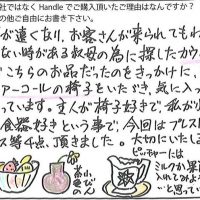 社ではなく Handle でご購入頂いたご理由はなんですか？
の他ご自由にお書き下さい。
が遠くなり、お客さんが来られてもわ
ない時がある叔母の為に探したカウ
こちらのお品だったのをきっかけに、
ァーコールの椅子をいただき、気に入っ
っています。主人が椅子好きで、私がリ
食器好きという事で、今回はプレスト
ス等4点、頂きました。大切にいたしま
ピッチャーには
ミルクか果
入れてみよう
と思ってい